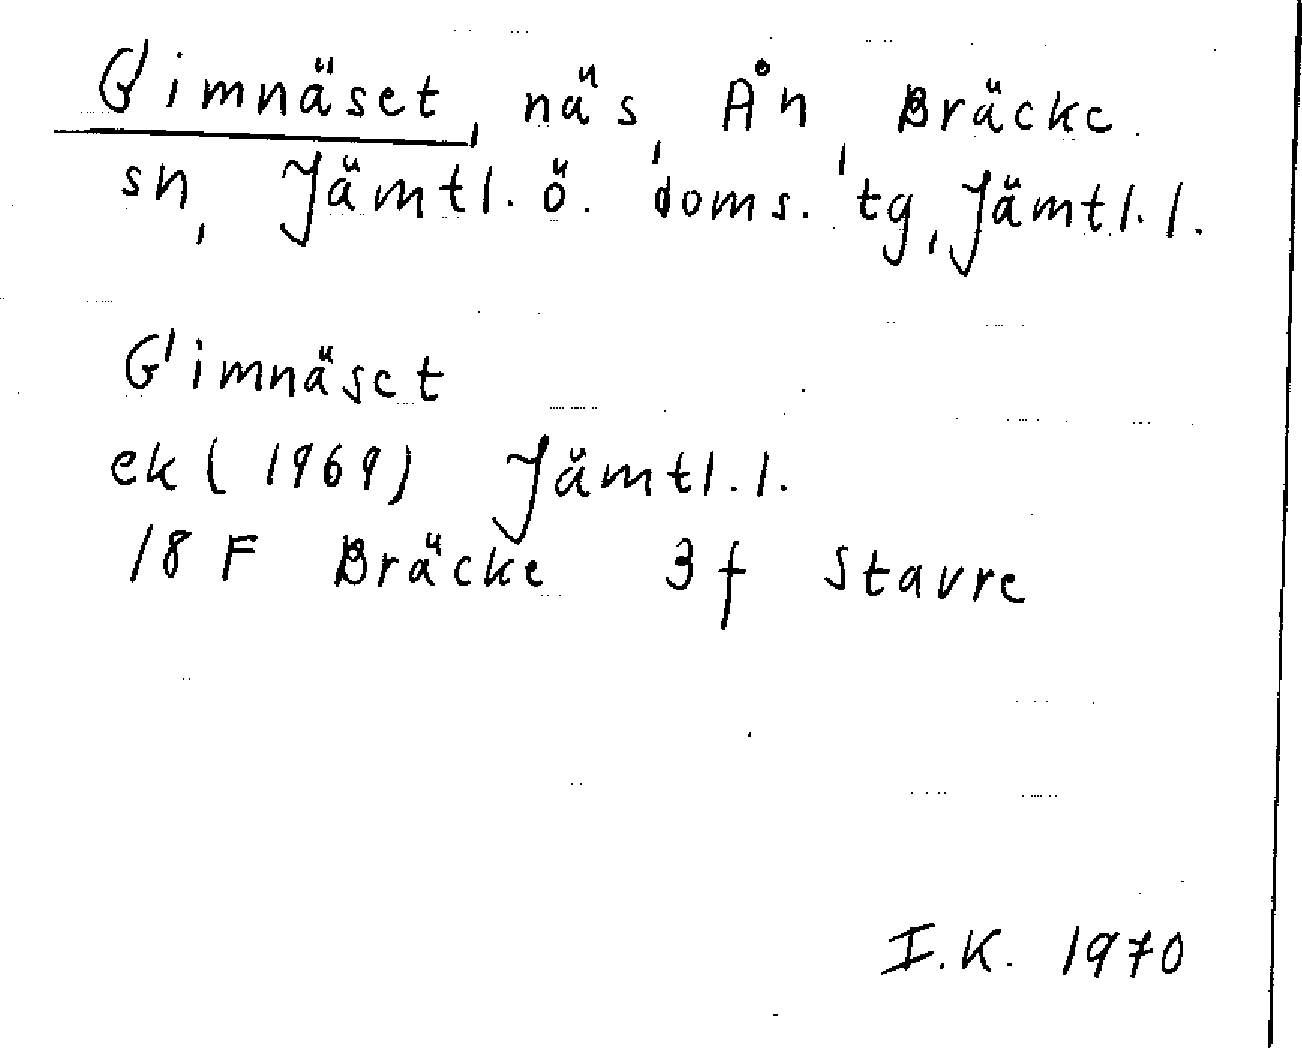 Gimnäset, näs, Ån, Bräcke
sn, Jämtl. ö. doms. tg, Jämtl. l.
Gimnäset
ek (1969) Jämtl. l.
18 F Bräcke 3 f Stavre
I.K. 1970